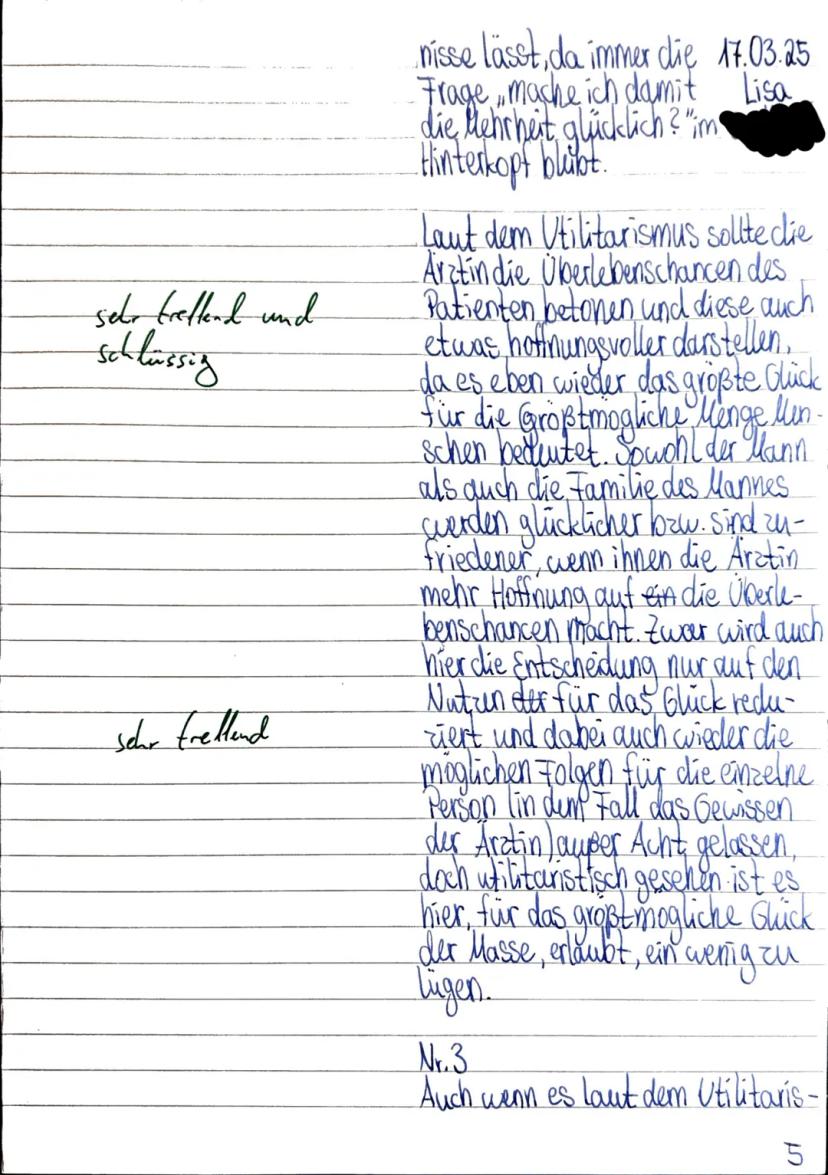 nisse lässt, da immer die 17.03.25
Frage „mache ich damit Lisa
die Mehrheit glücklich?" im
Hinterkopf bleibt.
Laut dem Utilitarismus sollte die
Ärztin die Überlebenschancen des
sehr treffend und Patienten betonen und diese auch
schlüssig etwas hoffnungsvoller darstellen,
da es eben wieder das größte Glück
für die Größtmögliche Menge Men-
schen bedeutet. Sowohl der Mann
als auch die Familie des Mannes
werden glücklicher bzw. sind zu-
friedener, wenn ihnen die Ärztin
mehr Hoffnung auf ein die Überle-
benschancen macht. Zwar wird auch
hier die Entscheidung nur auf den
Nutzen der für das Glück redu-
sehr treffend ziert und dabei auch wieder die
möglichen Folgen für die einzelne
Person (in dem Fall das Gewissen
der Ärztin) außer Acht gelassen,
doch utilitaristisch gesehen ist es
hier, für das größtmögliche Glück
der Masse, erlaubt, ein wenig zu
lügen.
Nr. 3
Auch wenn es laut dem Utilitaris-
5